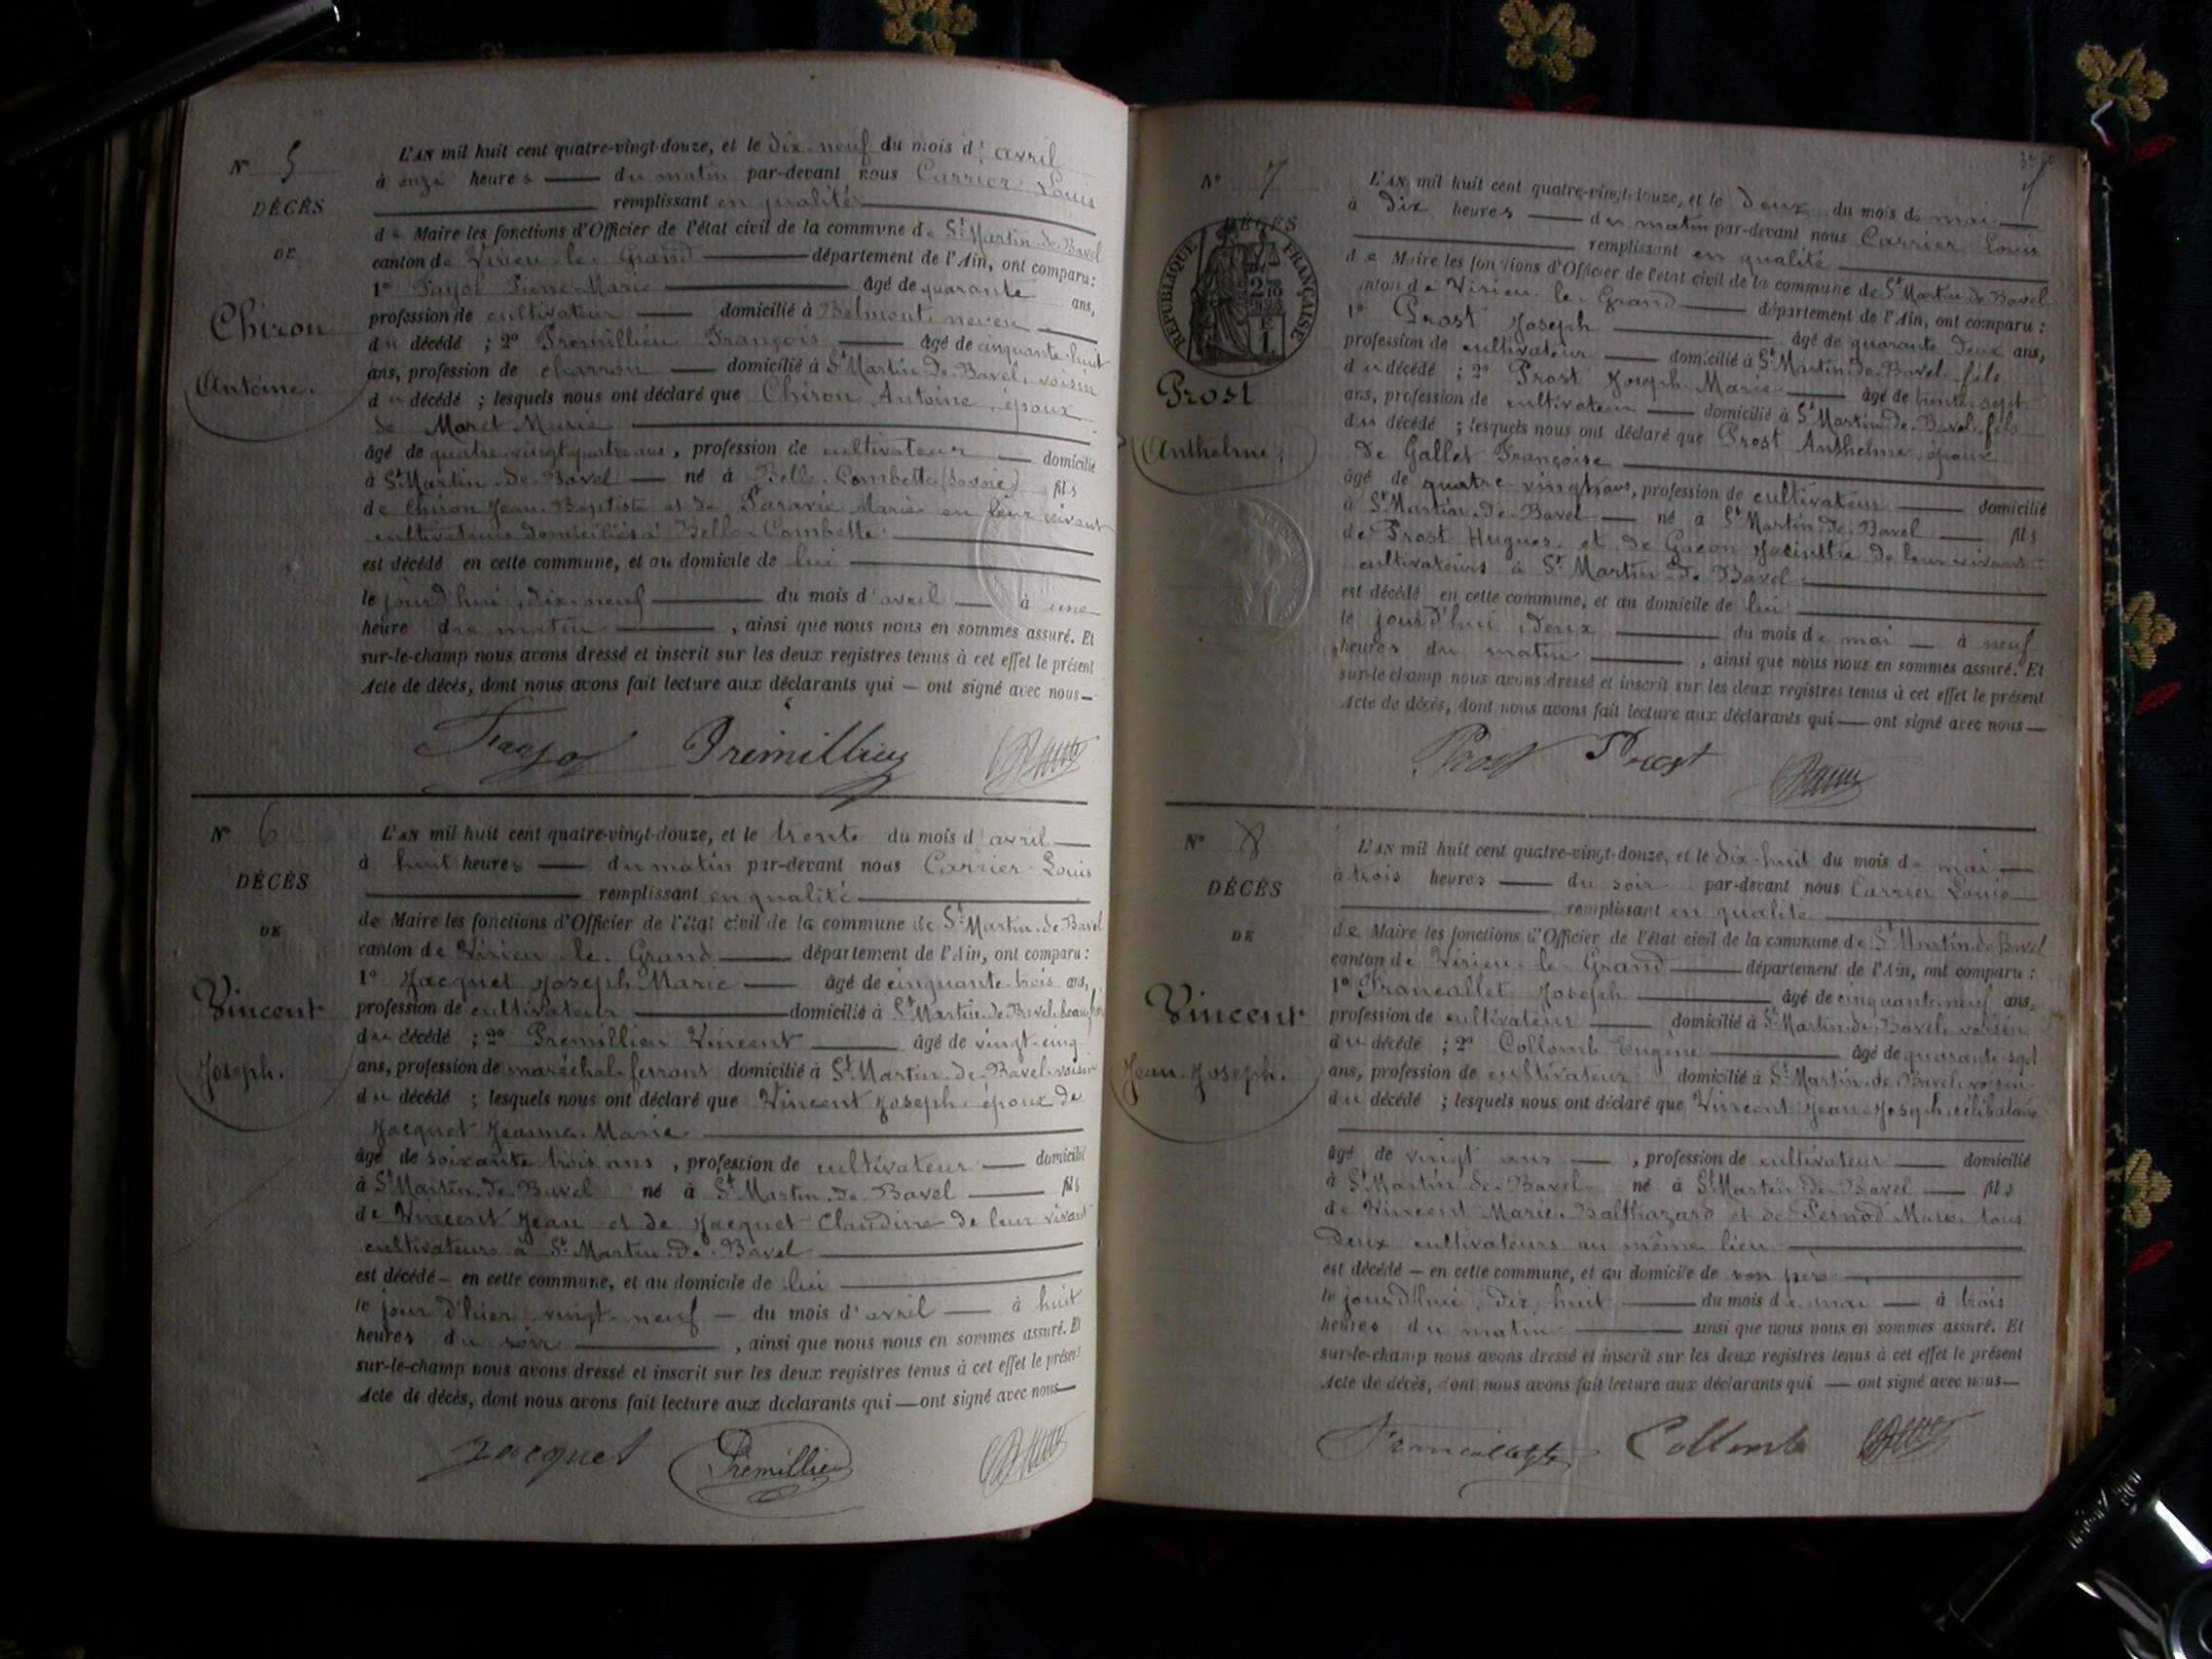 N° 5
DÉCÈS
DE
Chiron
Antoine.
L'AN mil huit cent quatre-vingt-douze, et le dix-neuf du mois d'avril
à onze heures — du matin par-devant nous Carrier Louis
remplissant en qualité
de Maire les fonctions d'Officier de l'état civil de la commune de St Martin-de-Bavel
canton de Virieu-le-Grand — département de l'Ain, ont comparu :
1° Pierre Marie — âgé de quarante ans,
profession de cultivateur — domicilié à Belmont, neveu
du décédé ; 2° Premillieu François — âgé de cinquante-huit
ans, profession de charron — domicilié à St Martin-de-Bavel, voisin
du décédé ; lesquels nous ont déclaré que Chiron Antoine, époux
de Moret Marie
âgé de quatre-vingt-quatre ans, profession de cultivateur — domicilié
à St Martin-de-Bavel — né à Belle-Combette (Savoie) fils
de Chiron Jean-Baptiste et de Paravie Marie en leur vivant
cultivateurs domiciliés à Belle-Combette.
est décédé en cette commune, et au domicile de lui
le jourd'hui, dix-neuf — du mois d'avril — à une
heure du matin — , ainsi que nous nous en sommes assuré. Et
sur-le-champ nous avons dressé et inscrit sur les deux registres tenus à cet effet le présent
Acte de décès, dont nous avons fait lecture aux déclarants qui — ont signé avec nous —
Prémillieu
N° 6
DÉCÈS
DE
Vincent
Joseph.
L'AN mil huit cent quatre-vingt-douze, et le trente du mois d'avril —
à huit heures — du matin par-devant nous Carrier Louis
remplissant en qualité
de Maire les fonctions d'Officier de l'état civil de la commune de St Martin-de-Bavel
canton de Virieu-le-Grand — département de l'Ain, ont comparu :
1° Jacquet Joseph Marie — âgé de cinquante-trois ans,
profession de cultivateur — domicilié à St Martin-de-Bavel, beau-frère
du décédé ; 2° Premillieu Vincent — âgé de vingt-cinq
ans, profession de maréchal-ferrant domicilié à St Martin-de-Bavel, voisin
du décédé ; lesquels nous ont déclaré que Vincent Joseph, époux de
Jacquet Jeanne-Marie
âgé de soixante trois ans, profession de cultivateur — domicilié
à St Martin-de-Bavel né à St Martin-de-Bavel — fils
de Vincent Jean et de Jacquet Claudine de leur vivant
cultivateurs à St Martin-de-Bavel
est décédé — en cette commune, et au domicile de lui
le jour d'hier vingt-neuf — du mois d'avril — à huit
heures du soir — , ainsi que nous nous en sommes assuré. Et
sur-le-champ nous avons dressé et inscrit sur les deux registres tenus à cet effet le présent
Acte de décès, dont nous avons fait lecture aux déclarants qui — ont signé avec nous —
Jacquet Prémillieu
N° 7
DÉCÈS
RÉPUBLIQUE FRANÇAISE
Prost
Anthelme.
L'AN mil huit cent quatre-vingt-douze, et le deux du mois de mai —
à dix heures — du matin par-devant nous Carrier Louis
remplissant en qualité
de Maire les fonctions d'Officier de l'état civil de la commune de St Martin-de-Bavel
canton de Virieu-le-Grand — département de l'Ain, ont comparu :
1° Prost Joseph — âgé de quarante deux ans,
profession de cultivateur — domicilié à St Martin-de-Bavel fils
du décédé ; 2° Prost Joseph-Marie — âgé de trente-sept
ans, profession de cultivateur — domicilié à St Martin-de-Bavel, fils
du décédé ; lesquels nous ont déclaré que Prost Anthelme, époux
de Gallet Françoise
âgé de quatre-vingts ans, profession de cultivateur — domicilié
à St Martin-de-Bavel — né à St Martin-de-Bavel — fils
de Prost Hugues, et de Gacon Jacinthe de leur vivant
cultivateurs à St Martin-de-Bavel
est décédé en cette commune, et au domicile de lui
le jourd'hui, deux — du mois de mai — à neuf
heures du matin — , ainsi que nous nous en sommes assuré. Et
sur-le-champ nous avons dressé et inscrit sur les deux registres tenus à cet effet le présent
Acte de décès, dont nous avons fait lecture aux déclarants qui — ont signé avec nous —
Prost Prost
N° 8
DÉCÈS
DE
Vincent
Jean-Joseph.
L'AN mil huit cent quatre-vingt-douze, et le dix-huit du mois de mai —
à trois heures — du soir par-devant nous Carrier Louis —
remplissant en qualité
de Maire les fonctions d'Officier de l'état civil de la commune de St Martin-de-Bavel
canton de Virieu-le-Grand — département de l'Ain, ont comparu :
1° Francallet Joseph — âgé de cinquante-neuf ans,
profession de cultivateur — domicilié à St Martin-de-Bavel, voisin
du décédé ; 2° Collomb Eugène — âgé de quarante-sept
ans, profession de cultivateur domicilié à St Martin-de-Bavel, voisin
du décédé ; lesquels nous ont déclaré que Vincent Jean-Joseph, célibataire
âgé de vingt ans — , profession de cultivateur — domicilié
à St Martin-de-Bavel né à St Martin-de-Bavel — fils
de Vincent Marie-Balthazard et de Pernod Marie tous
deux cultivateurs au même lieu
est décédé — en cette commune, et au domicile de son père —
le jourd'hui, dix-huit — du mois de mai — à trois
heures du matin — ainsi que nous nous en sommes assuré. Et
sur-le-champ nous avons dressé et inscrit sur les deux registres tenus à cet effet le présent
Acte de décès, dont nous avons fait lecture aux déclarants qui — ont signé avec nous —
Francallet Collomb